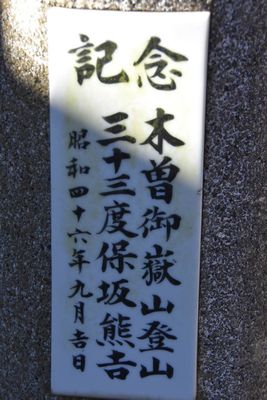 記念
木曽御嶽山登山
三十三度保坂熊吉
昭和四十六年九月吉日